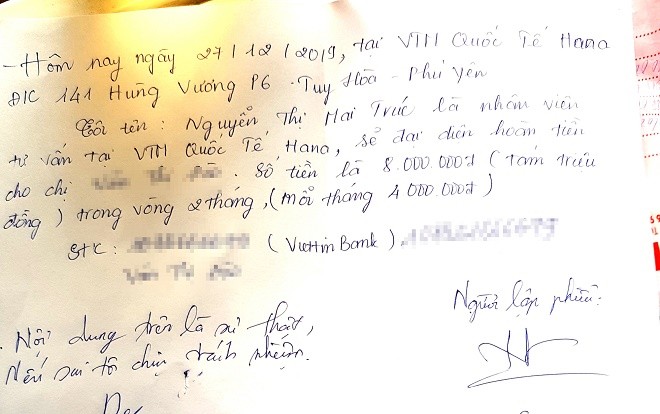 - Hôm nay ngày 27/12/2019, tại VTM Quốc Tế Hana
Đ/C 141 Hùng Vương P6 - Tuy Hòa - Phú Yên
Tôi tên: Nguyễn Thị Mai Trúc là nhân viên
tư vấn tại VTM Quốc Tế Hana, sẽ đại diện hoàn tiền
cho chị . Số tiền là 8.000.000đ (tám triệu
đồng) trong vòng 2 tháng, (mỗi tháng 4 000.000đ)
STK: (Viettin Bank)
Người lập phiếu:
Nội dung trên là sự thật,
Nếu sai tô chịu trách nhiệm.